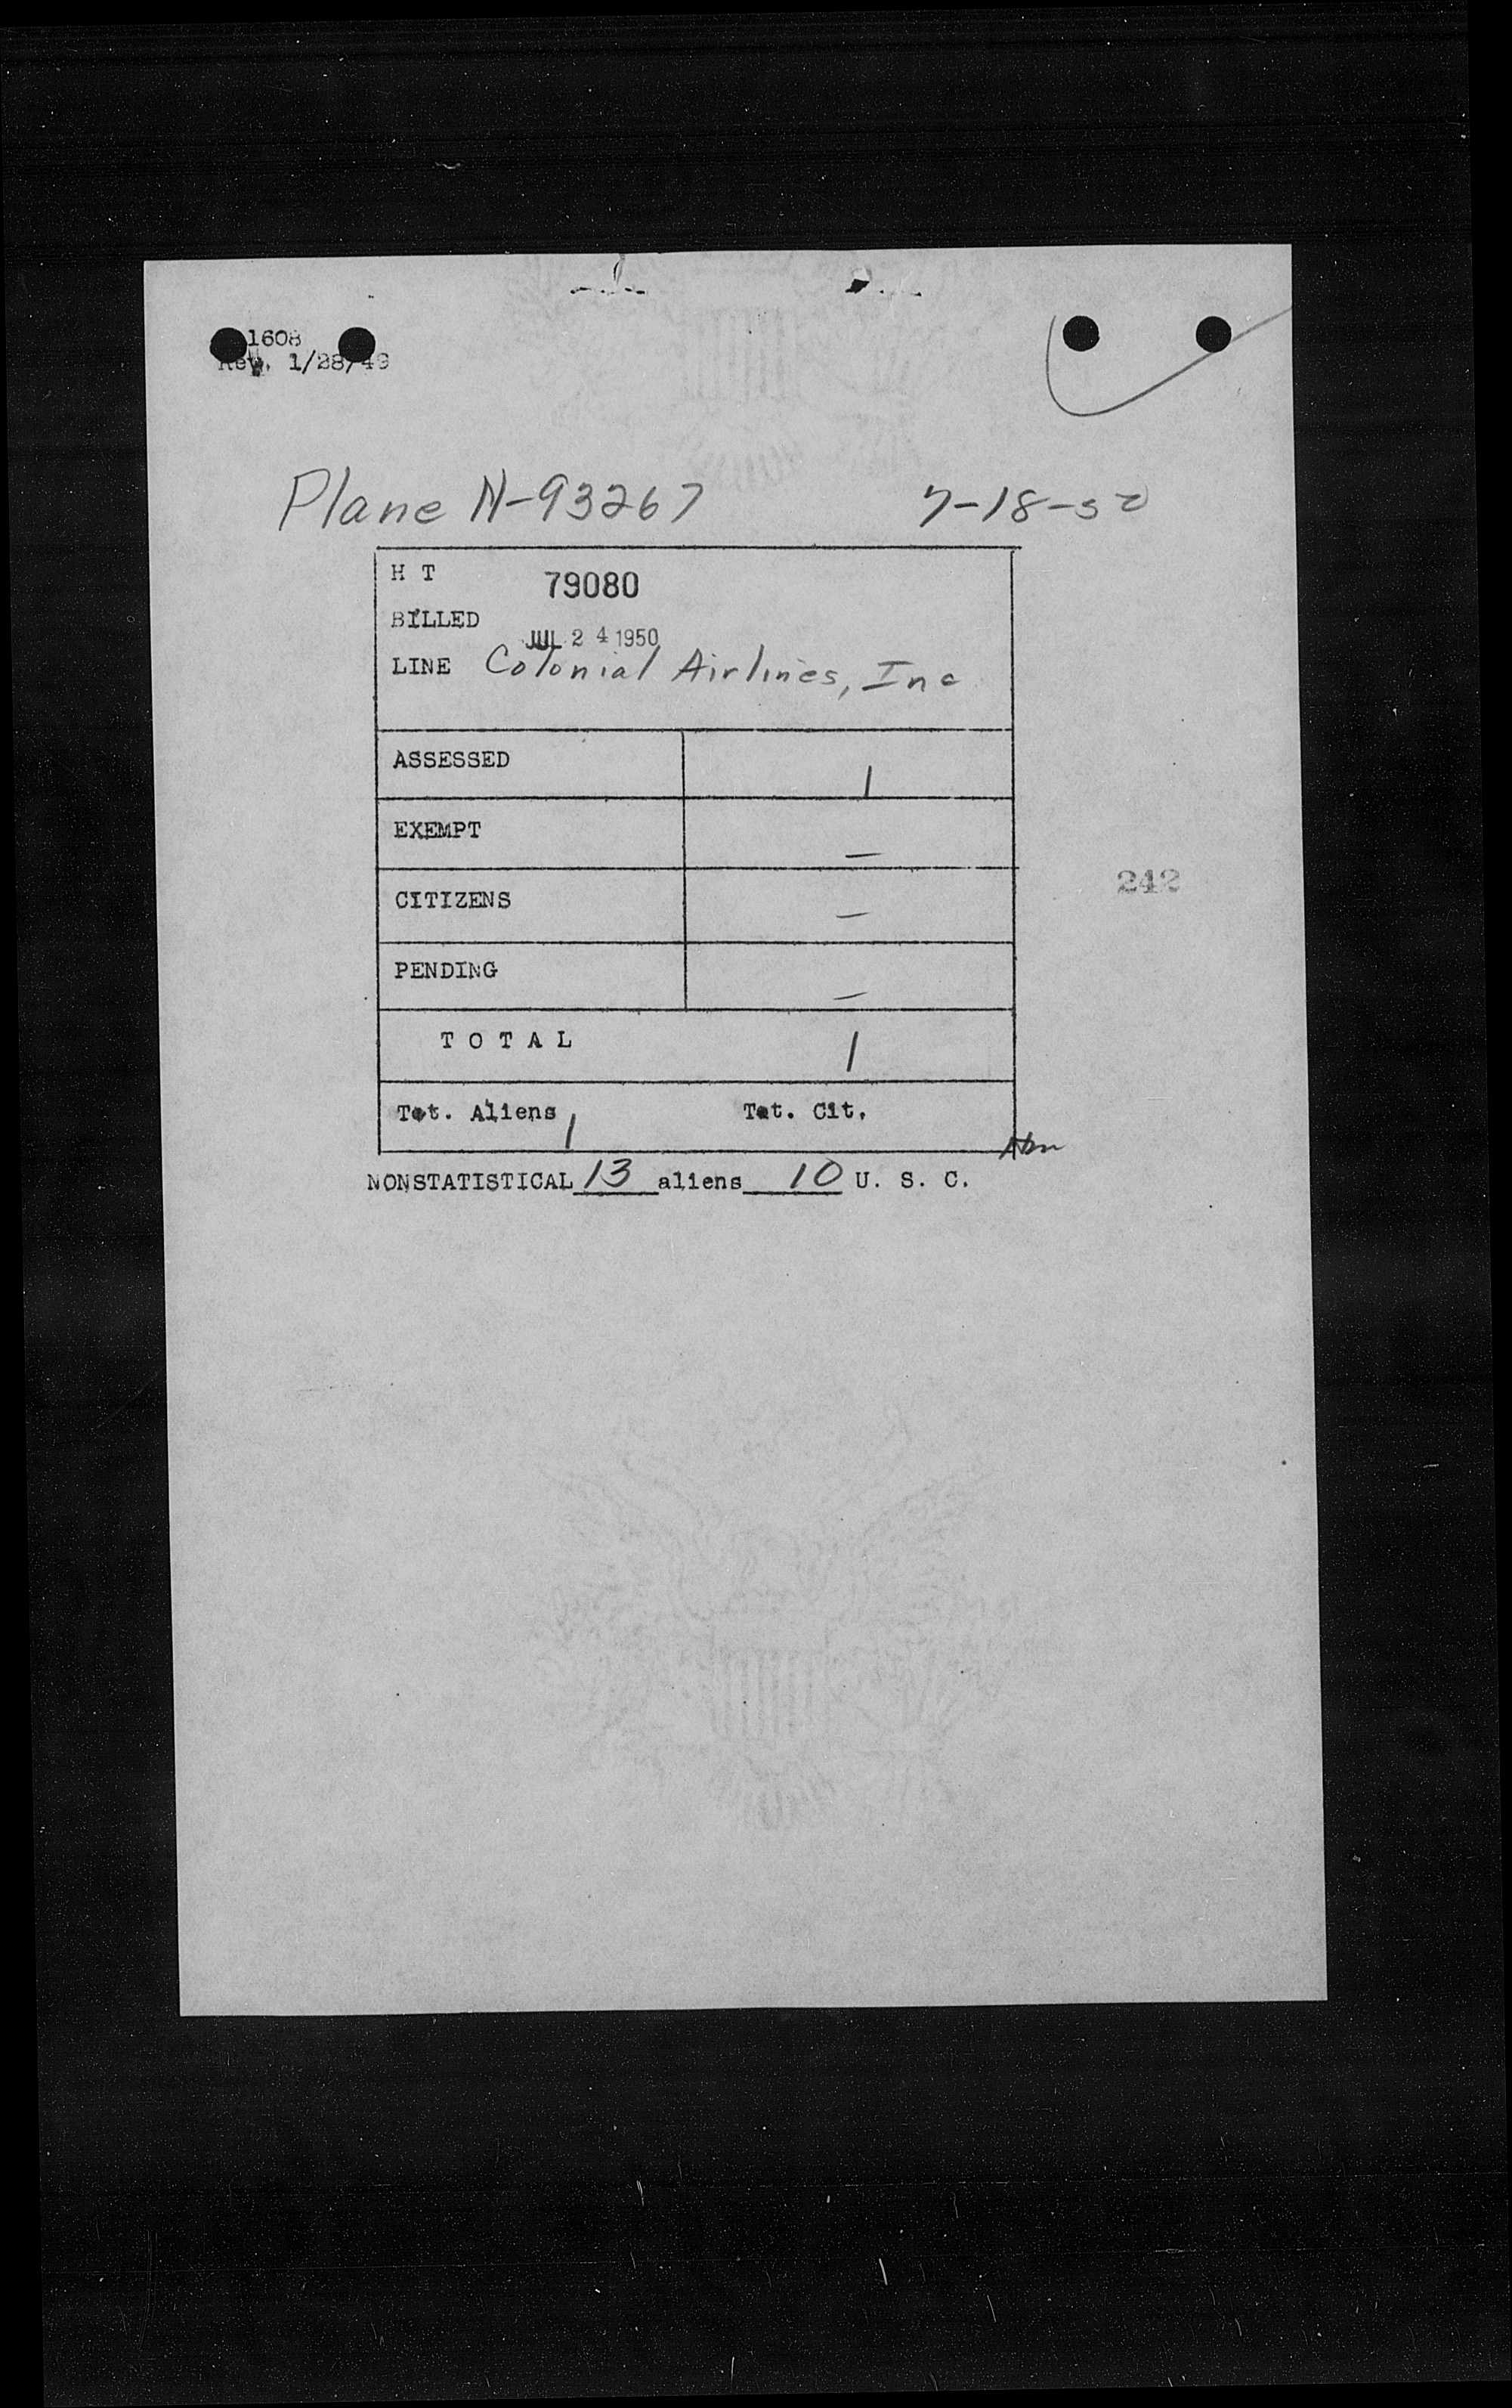 1608
Rev. 1/28/49
Plane N-93267 7-18-50
H T 79080
BILLED
JUL 24 1950
LINE Colonial Airlines, Inc
ASSESSED 1
EXEMPT –
242
CITIZENS –
PENDING –
T O T A L 1
Tot. Aliens 1 Tot. Cit.
NONSTATISTICAL 13 aliens 10 U. S. C.